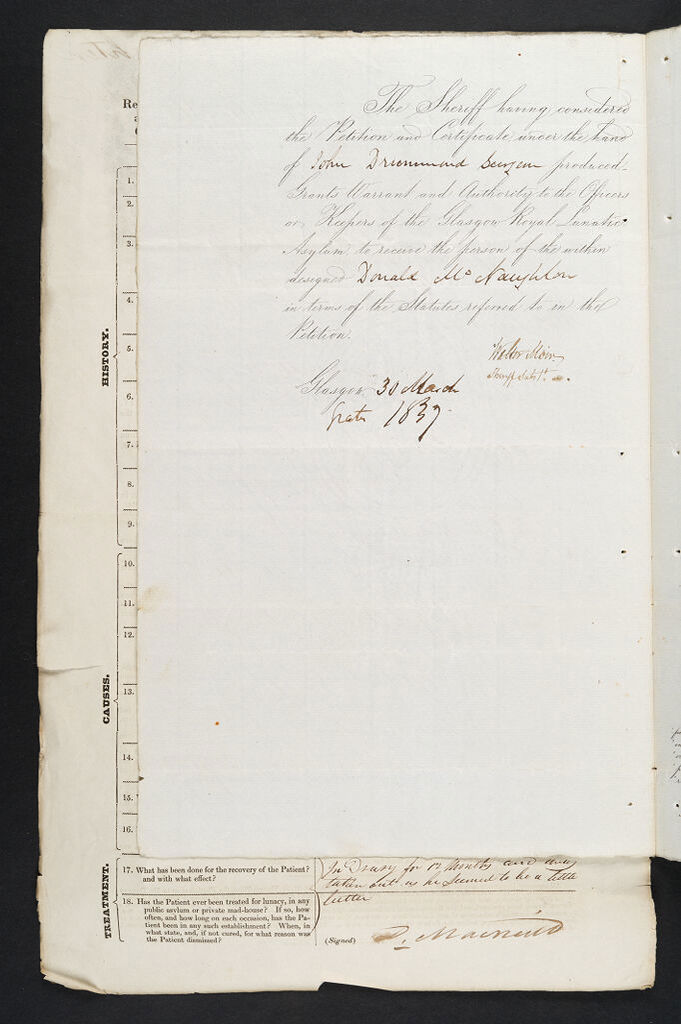 The Sheriff having considered
the Petition and Certificate under the hand
of John Drummond Surgeon produced
Grants Warrant and Authority to the Officers
or Keepers of the Glasgow Royal Lunatic
Asylum to receive the person of the within
designed Donald Mc Naughton
in terms of the Statutes referred to in the
Petition.
Walter Moir
Glasgow 30 March
1837.
Re
HISTORY.
1.
2.
3.
4.
5.
6.
7.
8.
9.
CAUSES.
10.
11.
12.
13.
14.
15.
16.
TREATMENT.
17. What has been done for the recovery of the Patient?
and with what effect?
18. Has the Patient ever been treated for lunacy, in any
public asylum or private mad-house? If so, how
often, and how long on each occasion, has the Pa-
tient been in any such establishment? When, in
what state, and, if not cured, for what reason was
the Patient dismissed?
for 12 Months and was
taken out as he seemed to be a little
better
(Signed)